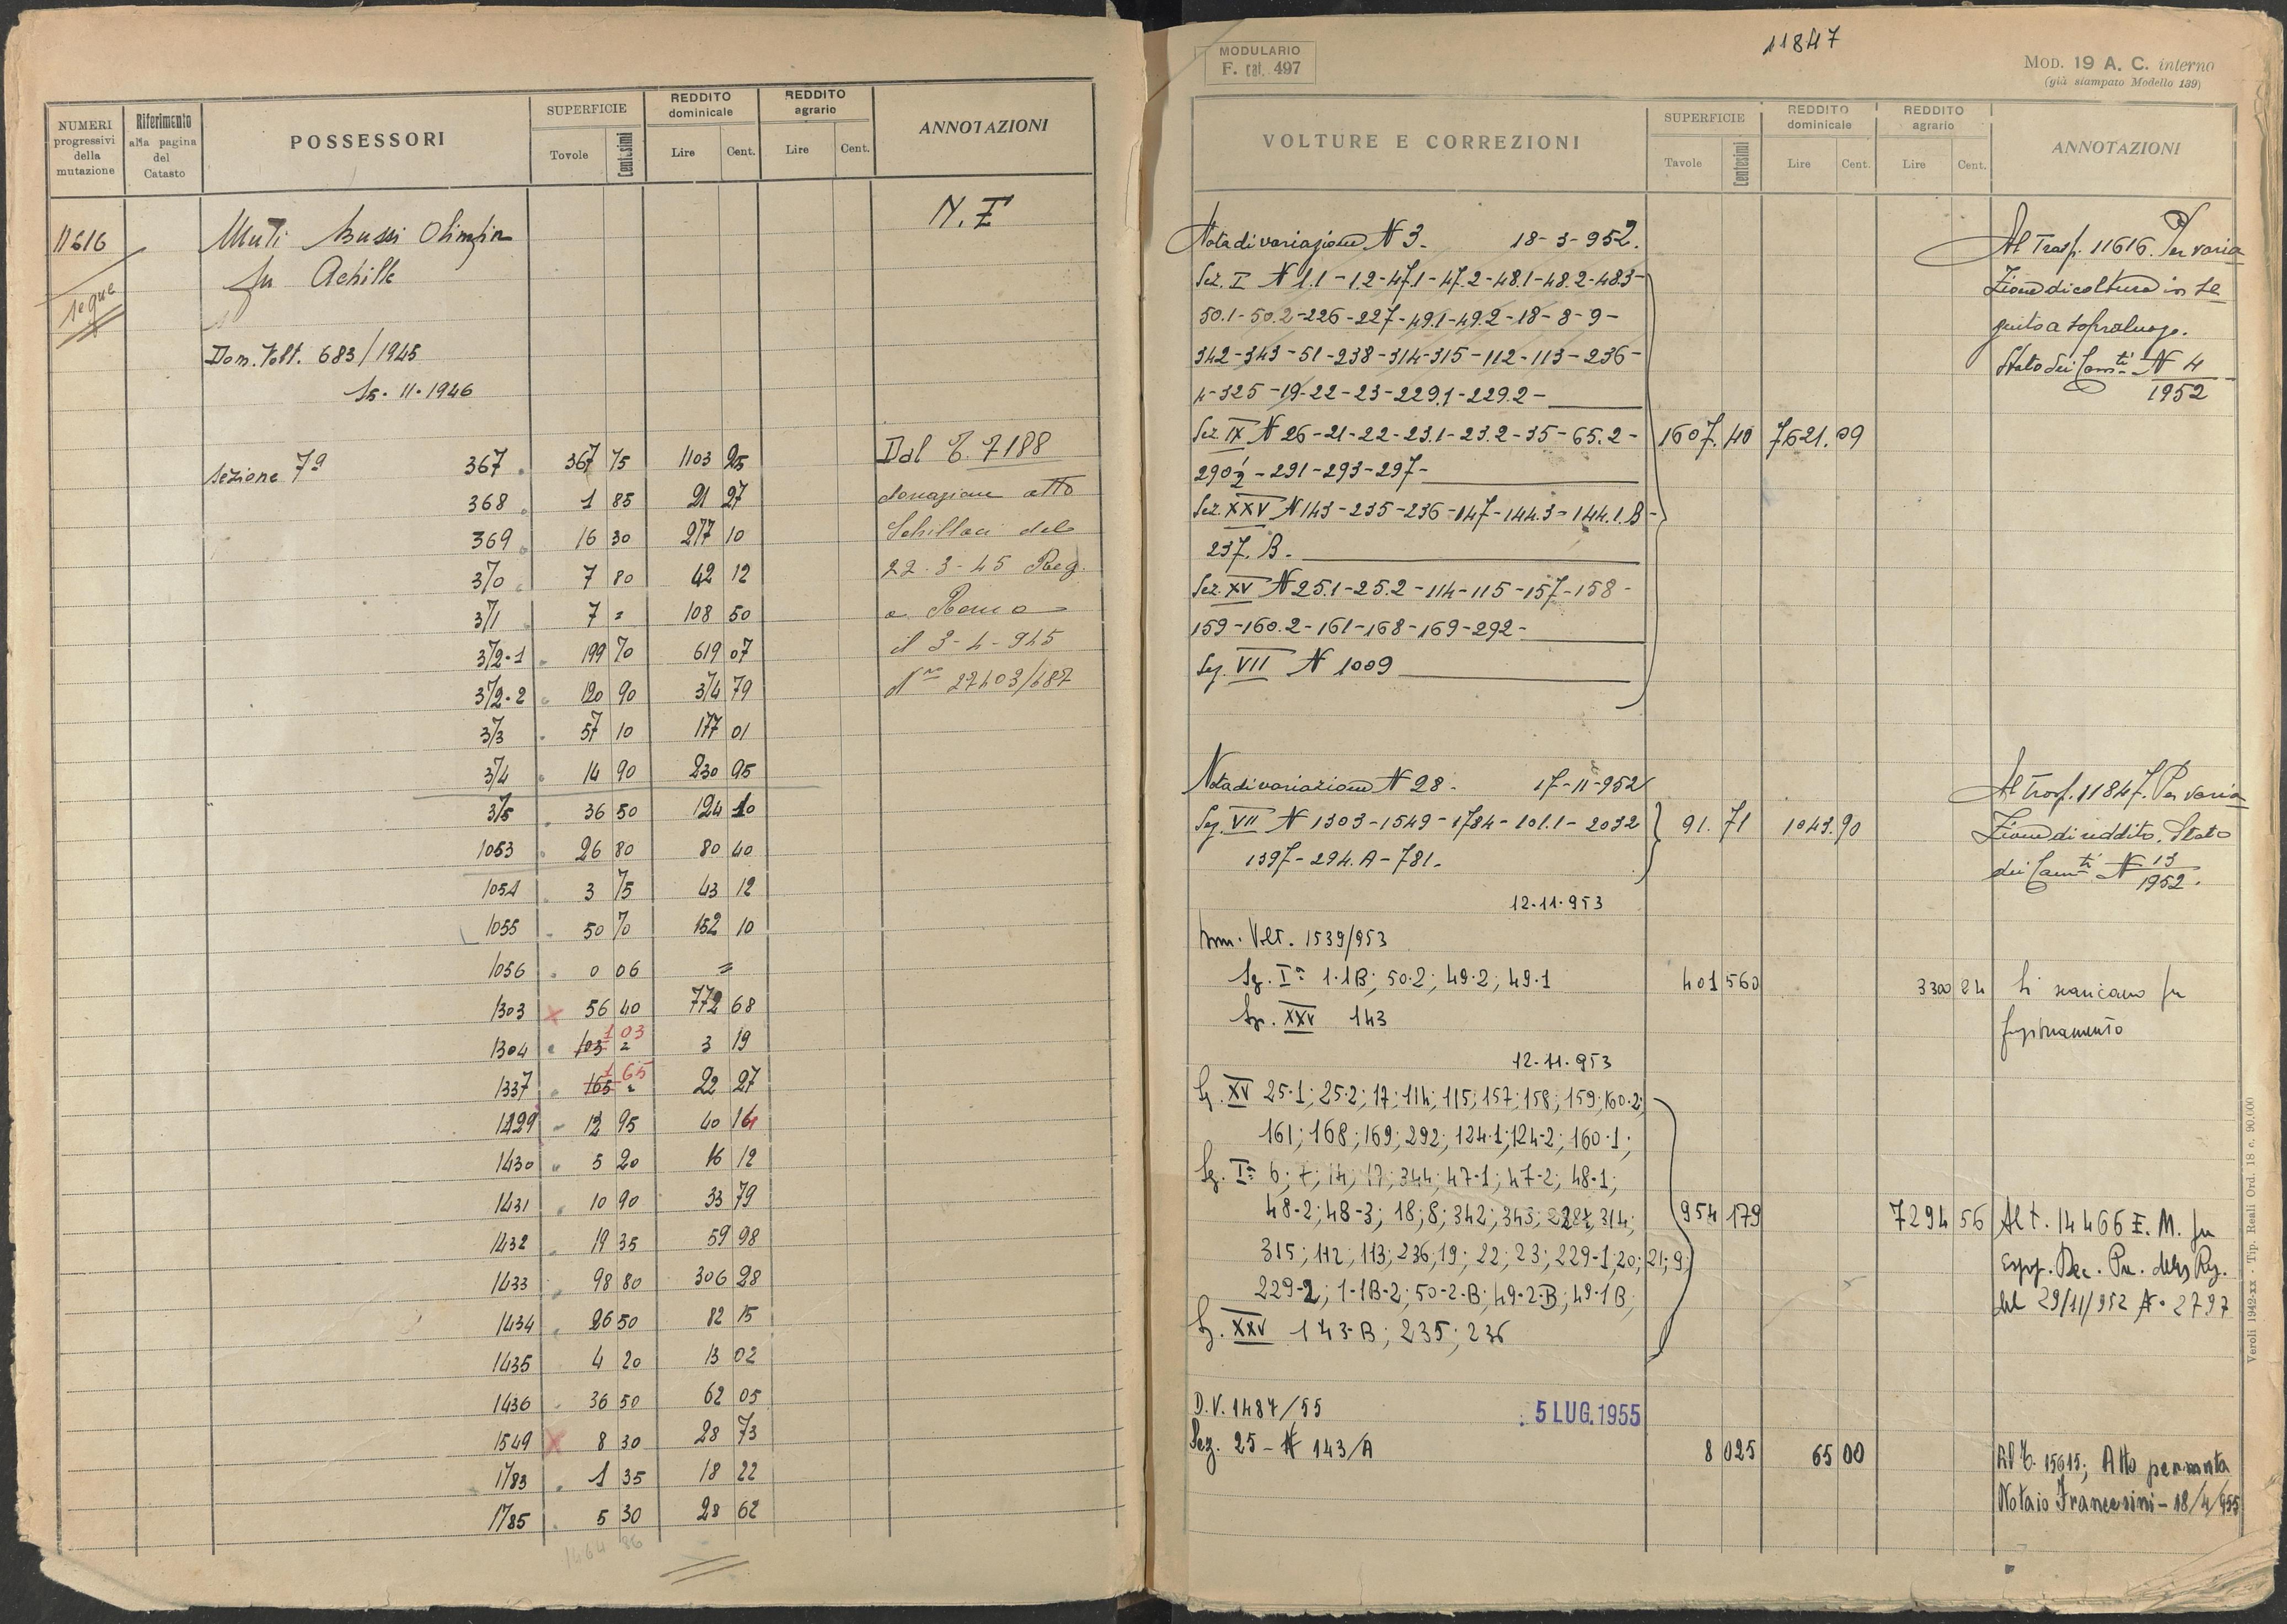 NUMERI progressivi della mutazione
Riferimento alla pagina del Catasto
POSSESSORI
SUPERFICIE
Tavole
Centesimi
REDDITO dominicale
Lire
Cent.
REDDITO agrario
Lire
Cent.
ANNOTAZIONI
11616
Muti Bussi Olimpia
N.E
segue
fu Achille
Dom. Volt. 683/1945
15.11.1946
sezione 7ª 367 367 75 1103 25 Dal T. 7188
368 1 85 21 27 donazione atto
369 16 30 277 10 Schillaci del
370 7 80 42 12 22-3-45 Reg.
371 7 = 108 50 a Roma
372-1 199 70 619 07 il 3-4-945
372-2 120 90 374 79
373 57 10 177 01
374 14 90 230 95
375 36 50 124 10
1053 26 80 80 40
1054 3 75 43 12
1055 50 70 152 10
1056 0 06 =
1303 x 56 40 772 68
1 03
1304 103 = 3 19
1 65
1337 165 = 22 27
1429 12 95 40 14
1430 5 20 16 12
1431 10 90 33 79
1432 19 35 59 98
1433 98 80 306 28
1434 26 50 82 15
1435 4 20 13 02
1436 36 50 62 05
1549 x 8 30 28 73
1783 1 35 18 22
1785 5 30 28 62
1464 86
MODULARIO
F. cat. 497
11847
MOD. 19 A. C. interno
(già stampato Modello 139)
VOLTURE E CORREZIONI
SUPERFICIE
Tavole
Centesimi
REDDITO dominicale
Lire
Cent.
REDDITO agrario
Lire
Cent.
ANNOTAZIONI
Nota di variazione N 3. 18-3-952. Al Trasf. 11616. Per varia
Sez. I N 1.1-1.2-47.1-47.2-48.1-48.2-48.3- zione di coltura in se
50.1-50.2-226-227-49.1-49.2-18-8-9- guito a sopraluogo.
342-343-51-238-314-315-112-113-236- Stato dei Cam.ti N 4
4-325-19-22-23-229.1-229.2- 1952
Sez. IX N 26-21-22-23.1-23.2-35-65.2- 1607.40 7621.09
290½-291-293-297-
Sez. XXV N 143-235-236-147-144.3-144.1.B-
237.B.
Sez. XV N 25.1-25.2-114-115-157-158-
159-160.2-161-168-169-292-
Sez. VII N 1009
Nota di variazione N 28. 17-11-952 Al Trasf. 11847. Per varia
Sez. VII N 1303-1549-1784-101.1-2032 91.71 1043.90 zione di reddito. Stato
1397-294.A-781. dei Cam.ti N 13
1952.
12.11.953
Dom. Volt. 1539/953
Sez. Iª 1.1B; 50.2; 49.2; 49.1 401 560 3300 24 Si scaricano per
Sez. XXV 143 frazionamento
12.11.953
Sez. XV 25.1; 25.2; 17; 114; 115; 157; 158; 159; 160.2;
161; 168; 169; 292; 124.1; 124-2; 160.1;
Sez. Iª 6; 7; 14; 17; 344; 47-1; 47-2; 48-1;
48-2; 48-3; 18; 8; 342; 343; 314; 954 179 7294 56 Al t. 14466 E. M. per
315; 112; 113; 236; 19; 22; 23; 229-1; 20; 21; 9; esprop. Dec. Pre. della Rep.
229-2; 1-1B-2; 50-2-B; 49-2-B; 49-1B; del 29/11/952 N. 2797
Sez. XXV 143-B; 235; 236
D.V. 1487/55 5 LUG. 1955
Sez. 25 - N 143/A 8 025 65 00 Al T. 15615; Atto permuta
Notaio Francesini - 18/4/955
Veroli 1942-xx - Tip. Reali Ord. 18 c. 90,000